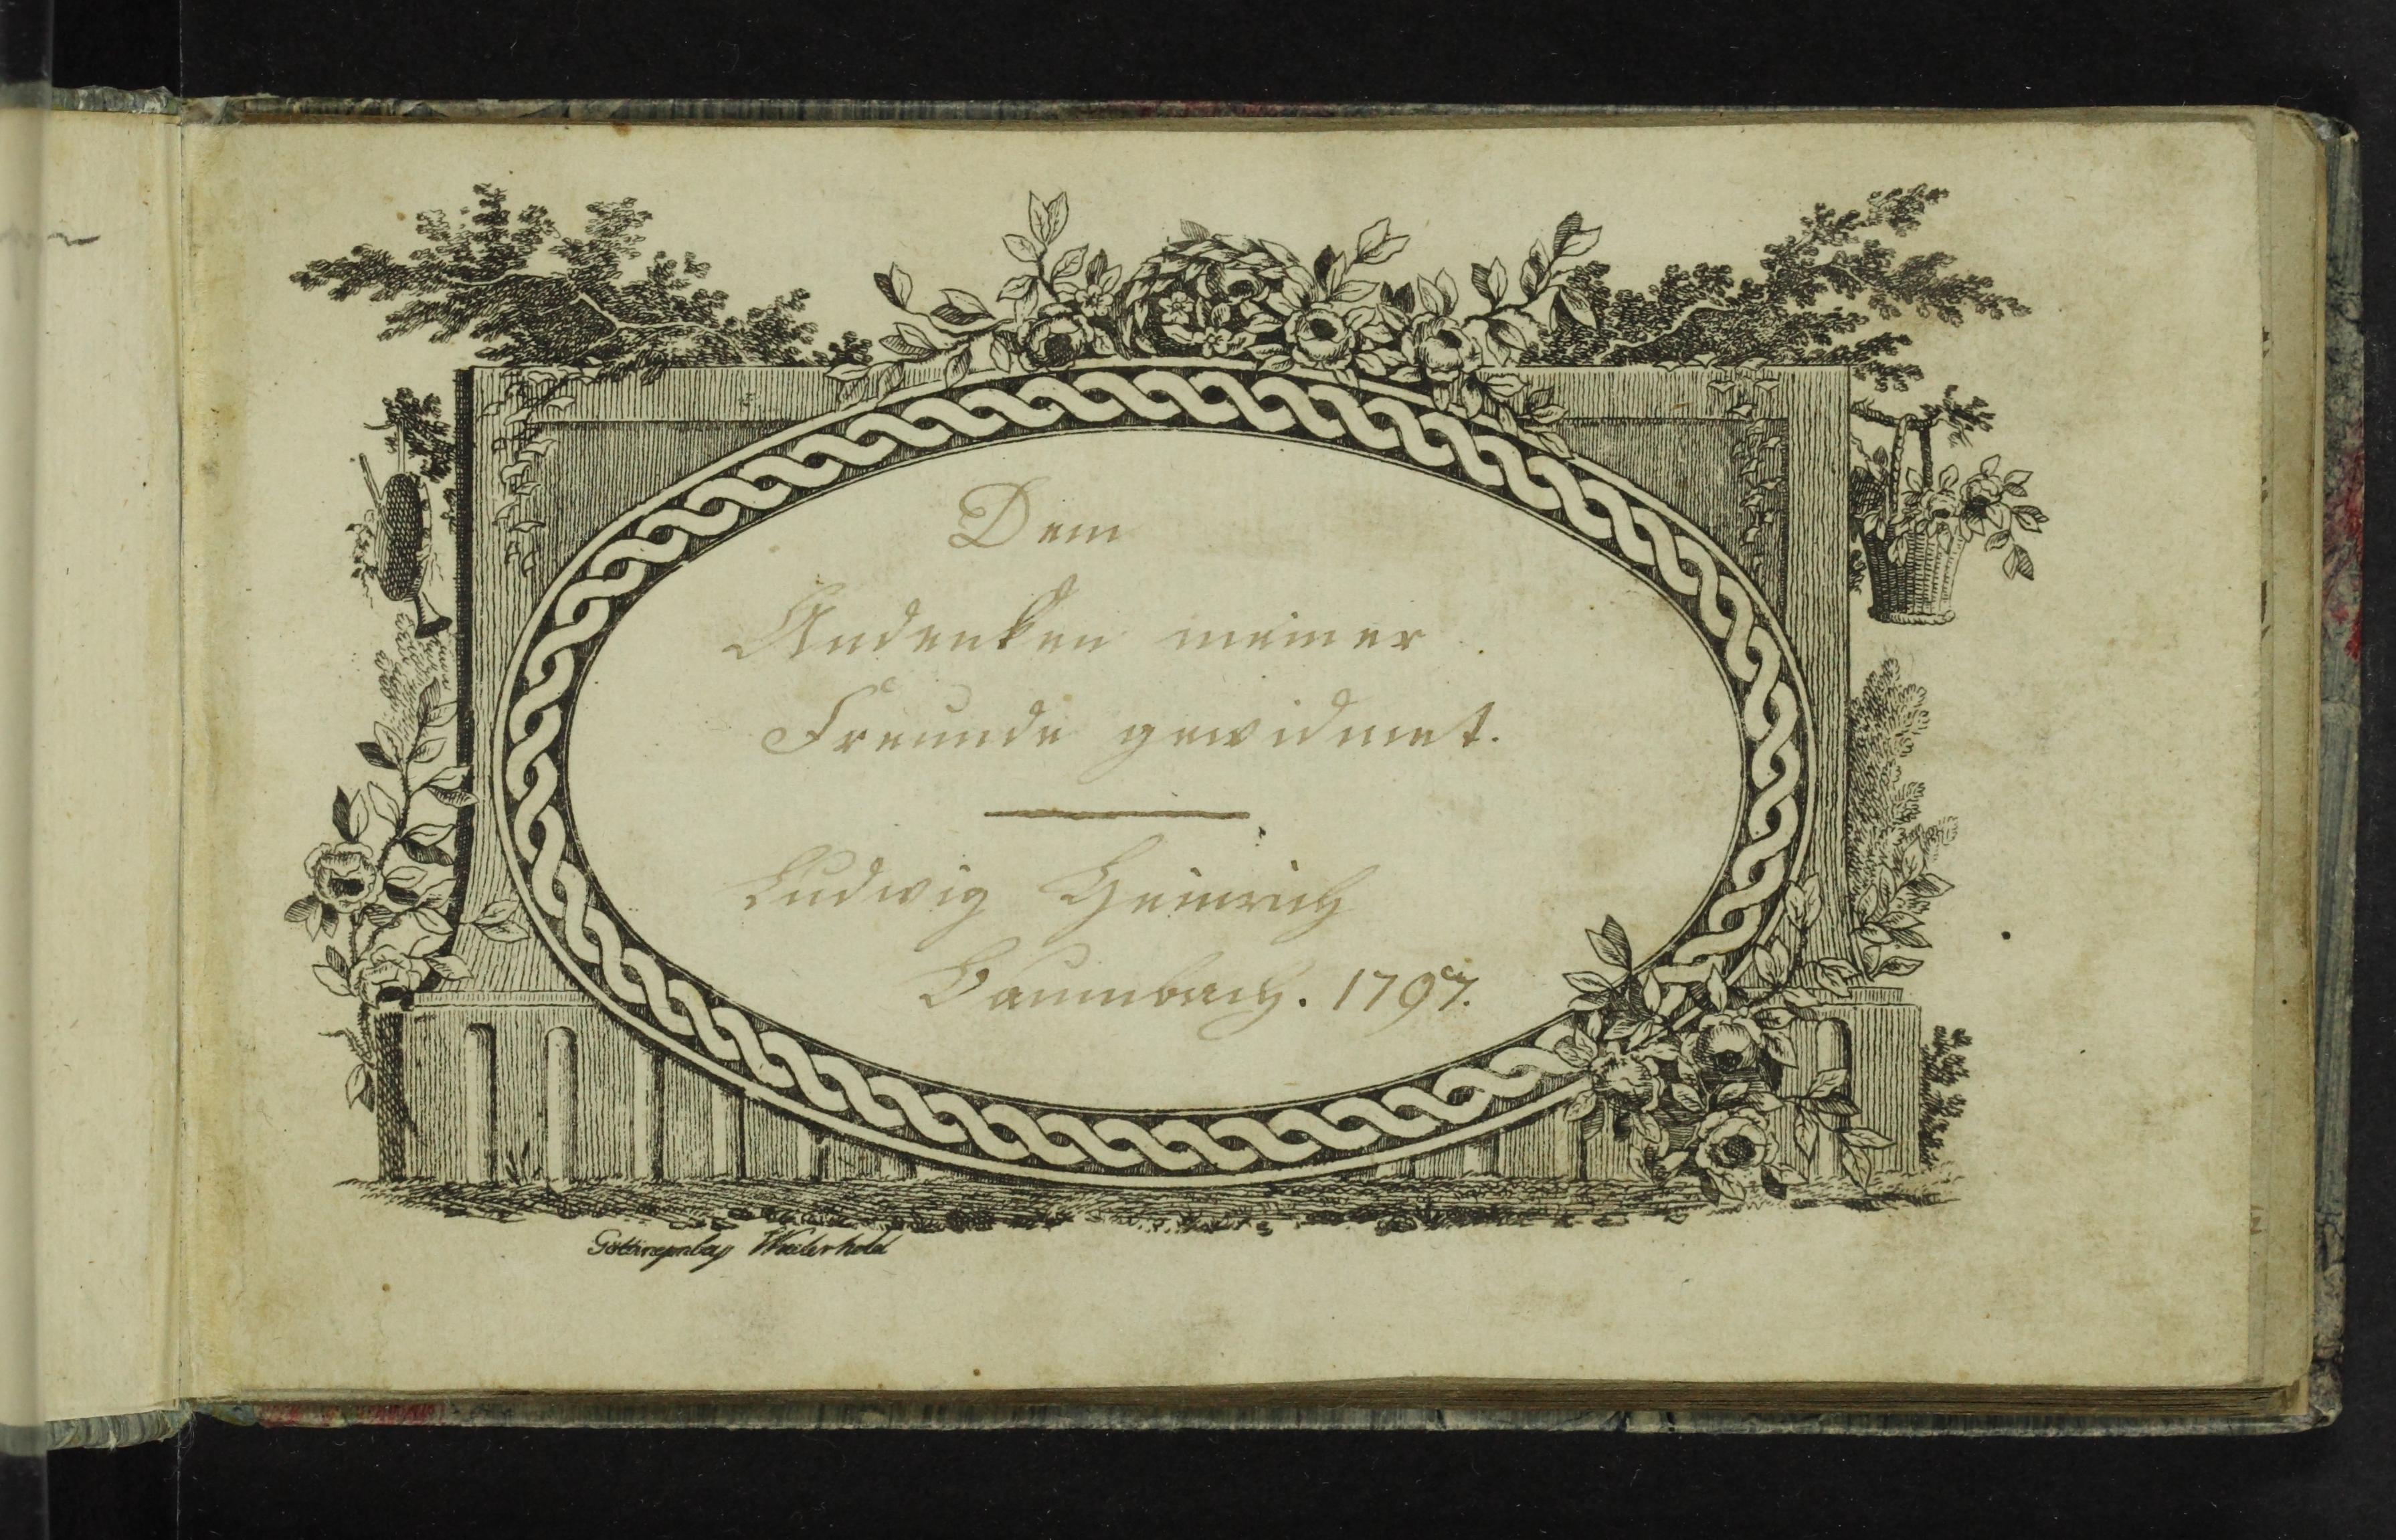 Dem
Andenken meiner
Freunde gewidmet.
Ludwig Heinrich
Baumbach. 1797.
Göttingen bey Wiederhold